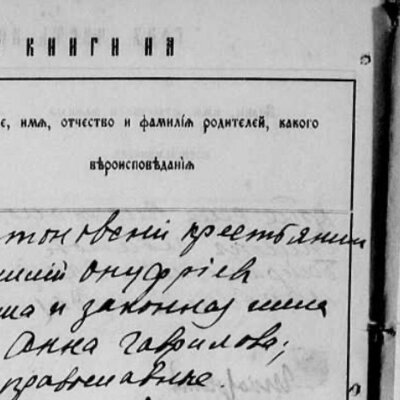 КНИГИ НА
е, имя, отчество и фамилія родителей, какого
вѣроисповѣданія
тоновскій крестьянин
илій Онуфріев
на и законная жена
Анна Гаврилова;
православные.